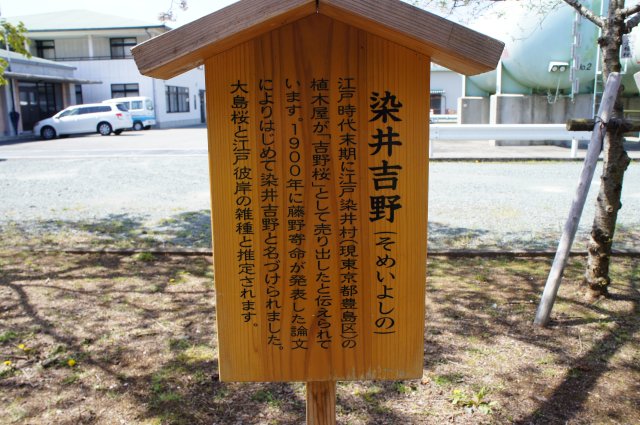 染井吉野(そめいよしの)
江戸時代末期に江戸染井村(現東京都豊島区)の
植木屋が「吉野桜」として売り出したと伝えられて
います。1900年に藤野寄命が発表した論文
によりはじめて染井吉野と名づけられました。
大島桜と江戸彼岸の雑種と推定されます。